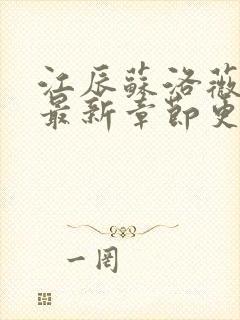 江辰蘇洛薇
最新章節更
一罔